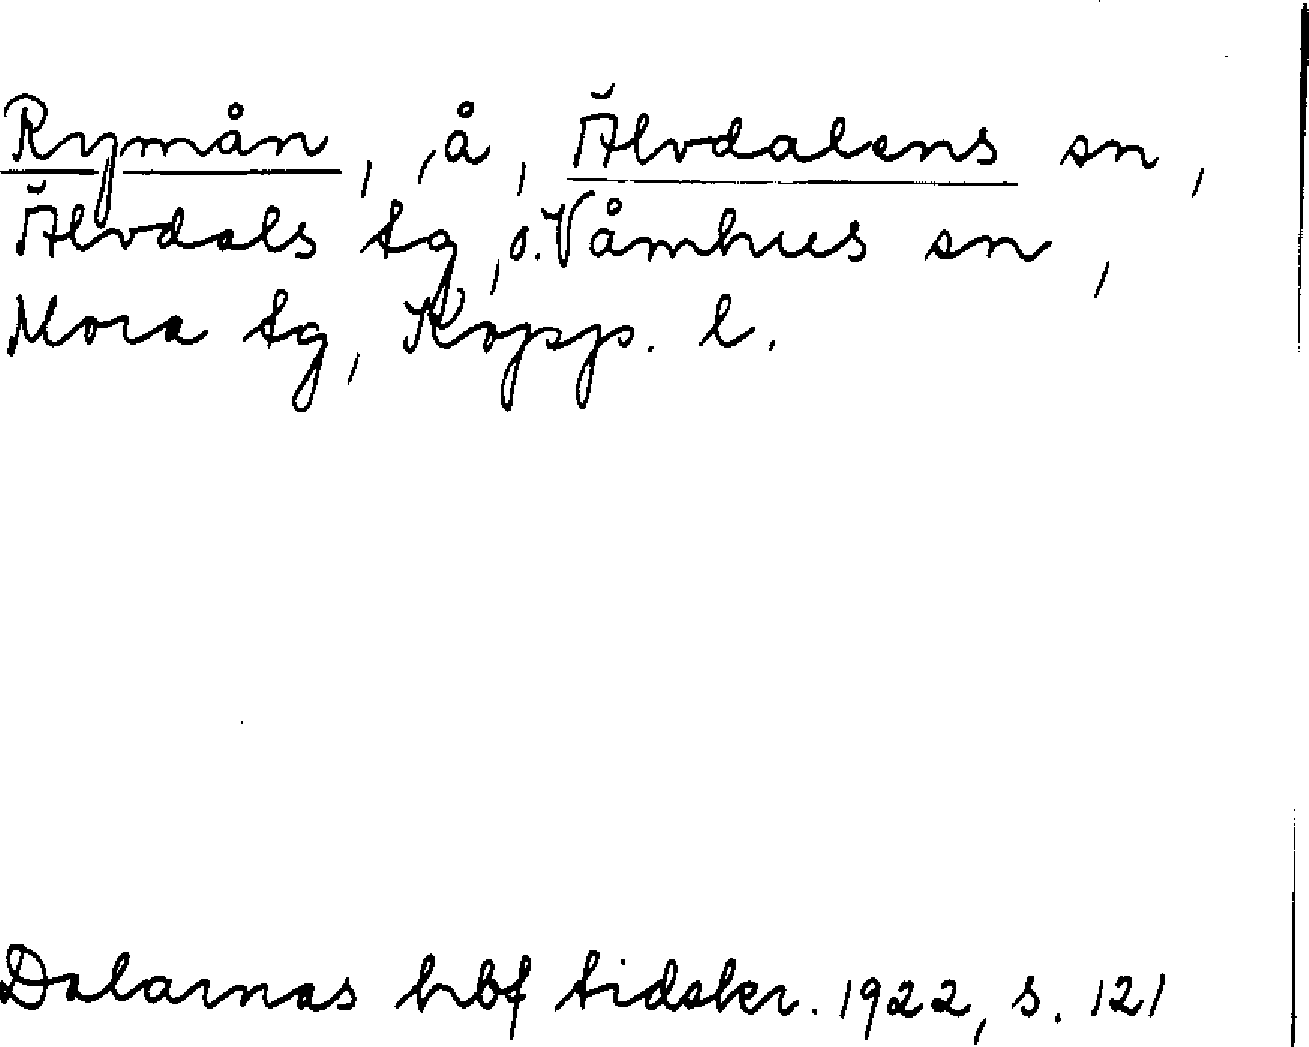 Rymån, å, Älvdalens sn,
Älvdals tg, o. Våmhus sn,
Mora tg, Kopp. l.
Dalarnas hbf tidskr. 1922, s. 121